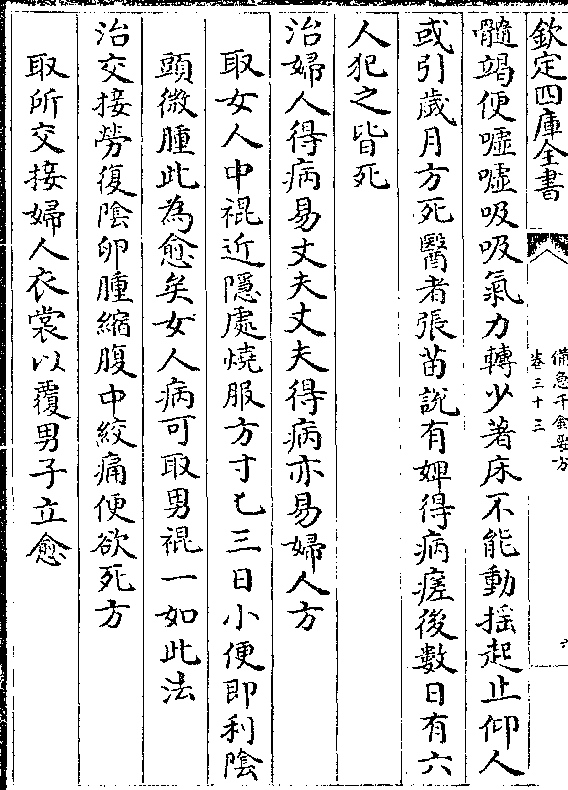 欽定四庫全書
備急千金要方
卷三十三
六
髓竭便噓噓吸吸氣力轉少著床不能動揺起止仰人
或引歲月方死醫者張苗說有婢得病瘥後數日有六
人犯之皆死
治婦人得病易丈夫丈夫得病亦易婦人方
取女人中裩近隱處燒服方寸匕三日小便即利陰
頭微腫此為愈矣女人病可取男裩一如此法
治交接勞復陰卵腫縮腹中絞痛便欲死方
取所交接婦人衣裳以覆男子立愈